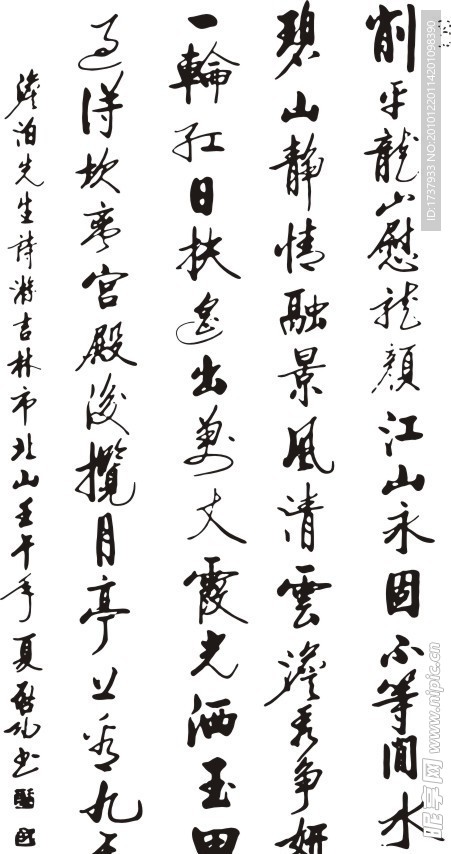 削平龍山慰龍顏江山永固不等閒水
碧山靜情融景風清雲澹秀爭妍
一輪紅日扶搖出萬丈霞光洒玉田
過得坎离宮殿後攬月亭上看九天
澹泊先生詩游吉林市北山壬午年夏啓書
ID:1737933 NO:20101220114201098390
昵图网 www.nipic.cn